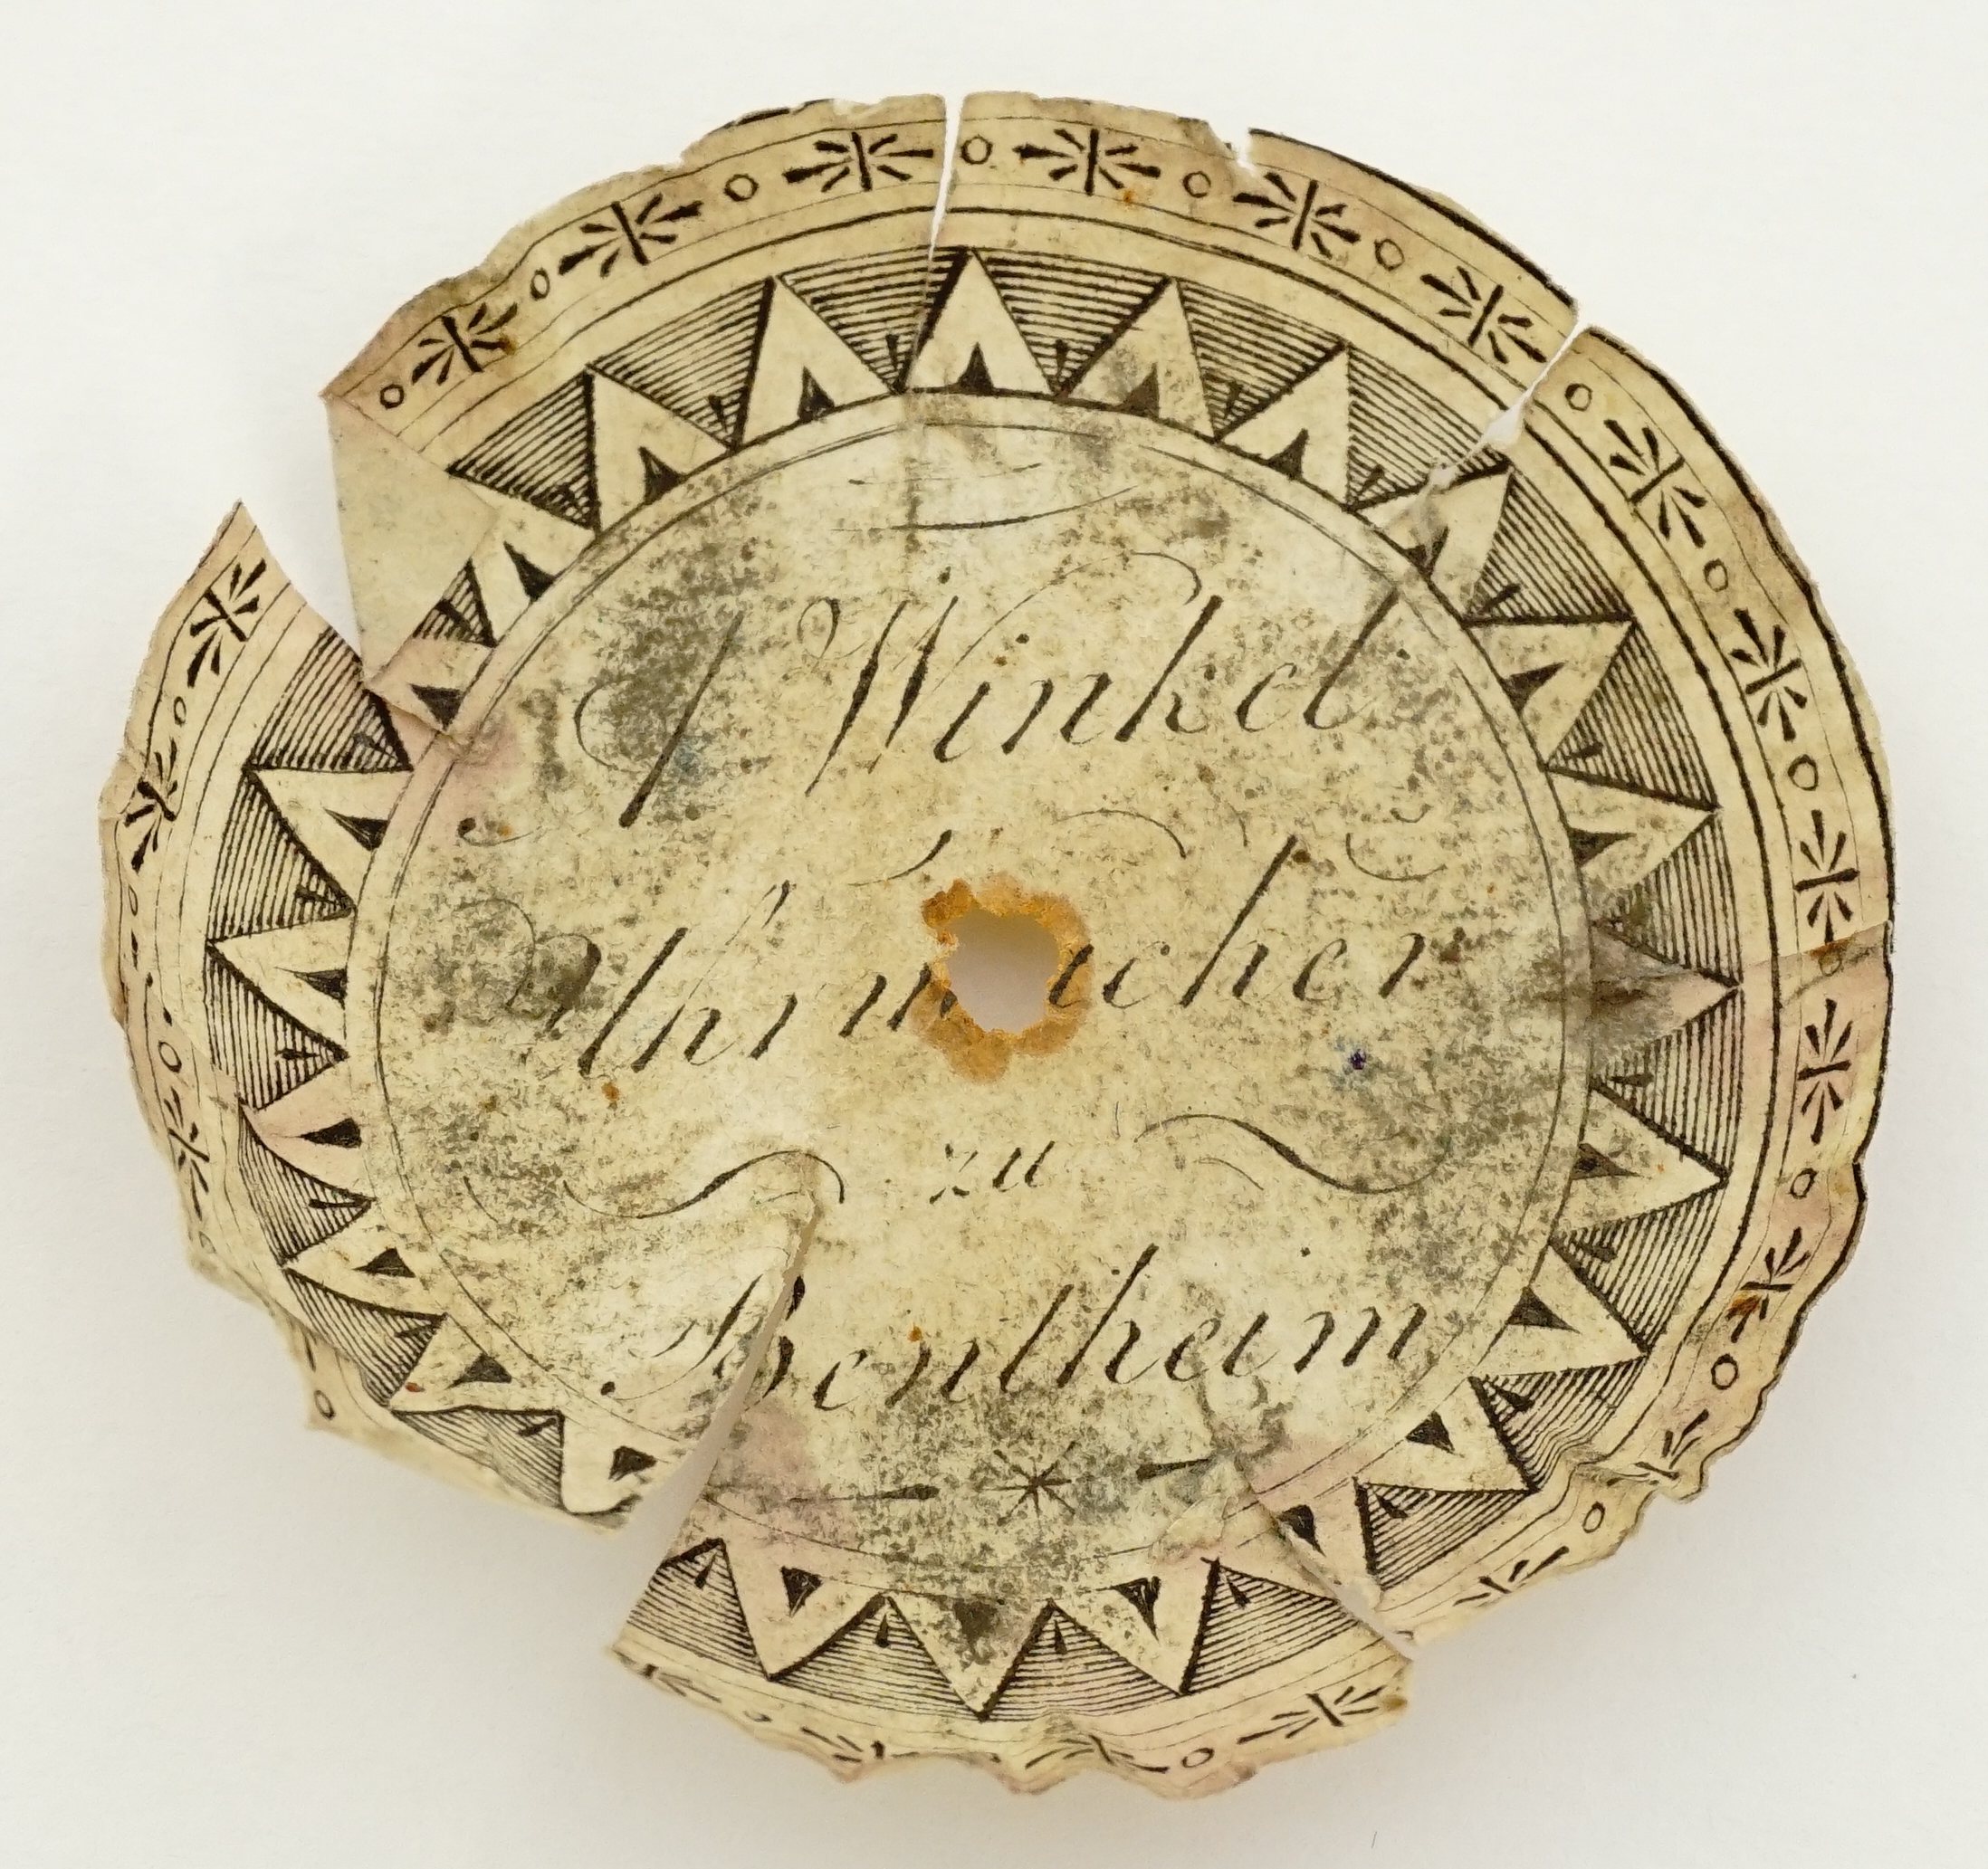 J Winkel
Uhrmacher
zu
Bentheim